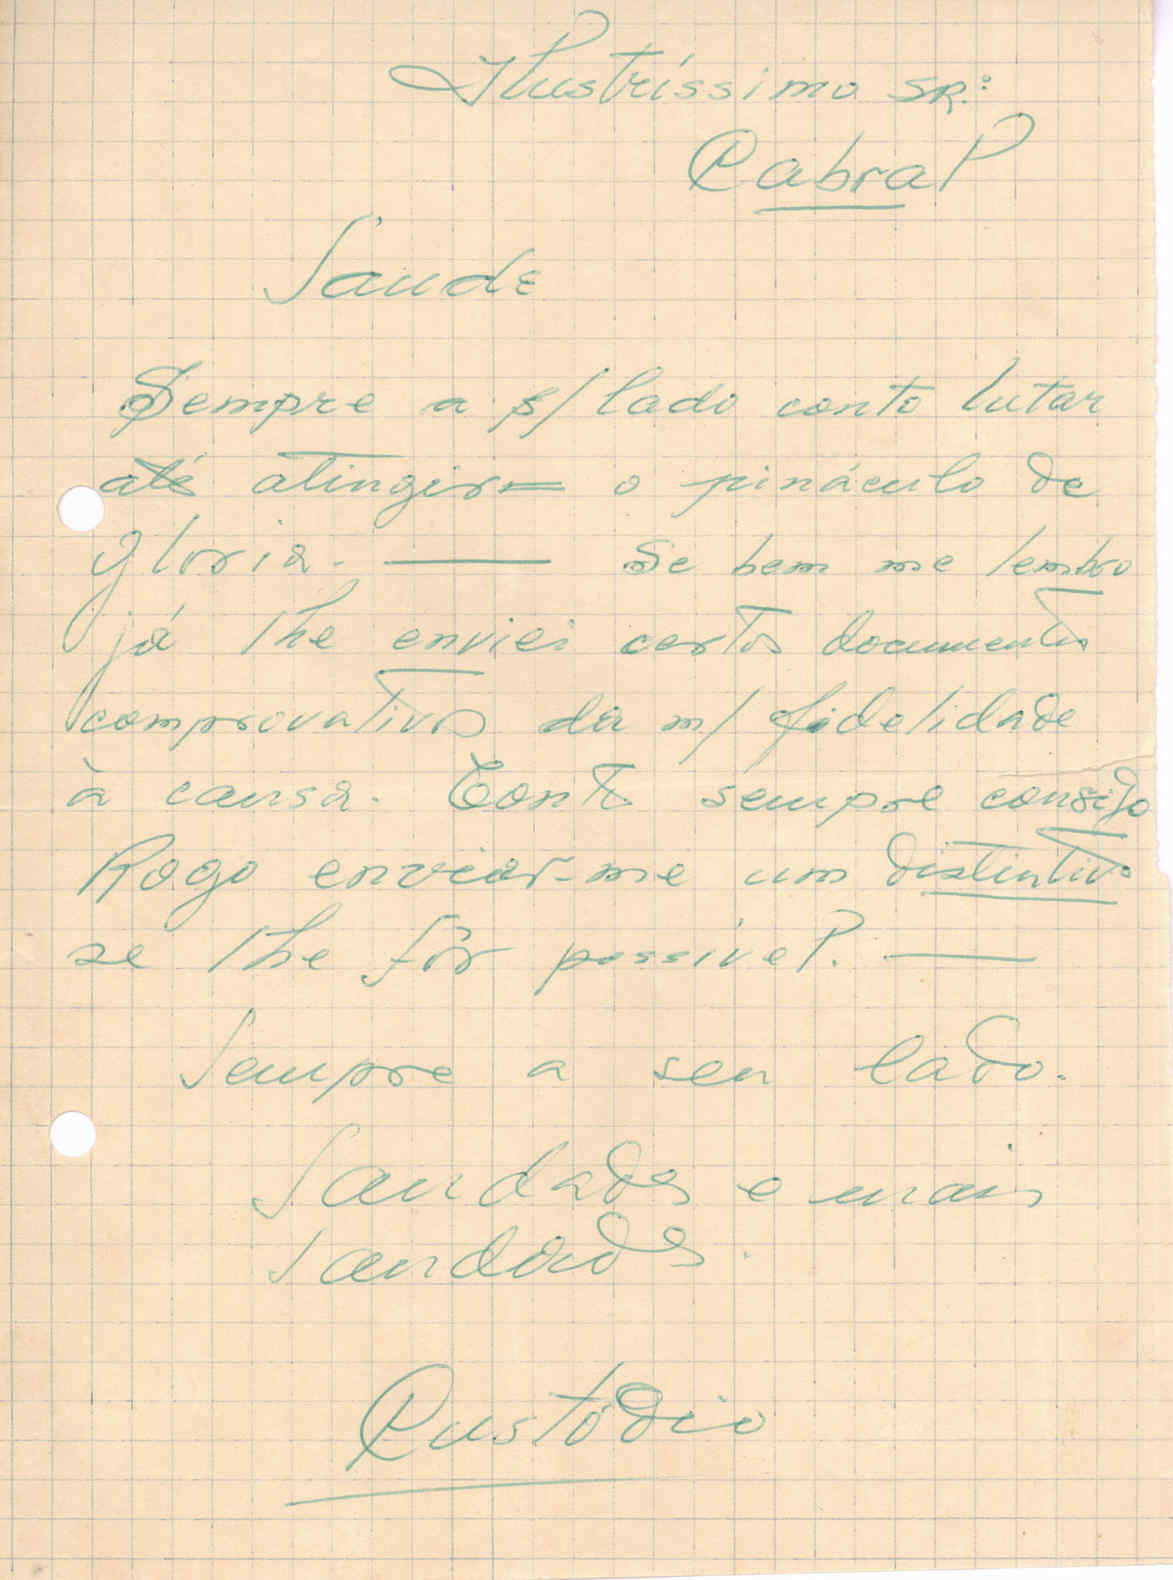 Ilustríssimo SR.:
Cabral
Saude
Sempre a s/ lado conto lutar
até atingir= o pináculo de
gloria. — Se bem me lembro
já lhe enviei certos documentos
comprovativos da m/ fidelidade
à causa. Conto sempre consigo
Rogo enviar-me um distintivo
se lhe fôr possivel. —
Sempre a seu lado.
Saudades e mais
saudades.
Custódio